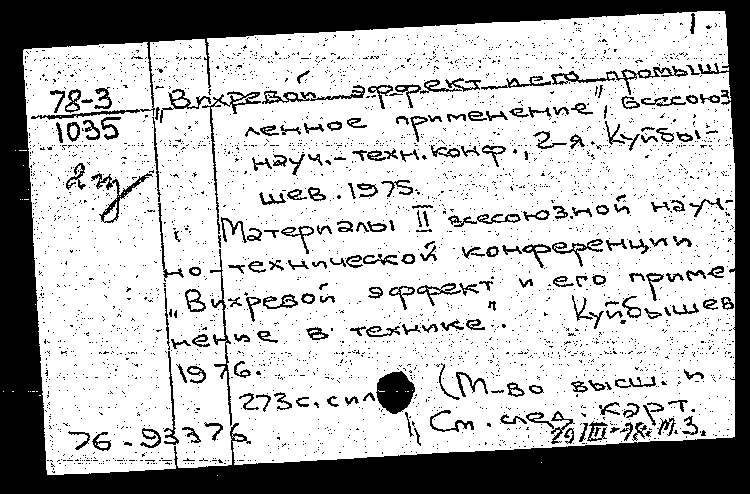 1.
78-3
1035
2 гу
„Вихревой эффект и его промыш-
ленное применение", всесоюз
науч.-техн.конф., 2-я. Куйбы-
шев. 1975.
Материалы II всесоюзной науч-
но-технической конференции
„Вихревой эффект и его приме-
нение в технике". Куйбышев
1976.
273 с. с ил (М-во высш. и
См. след. карт.
76-93376
29/III-78. М.З.